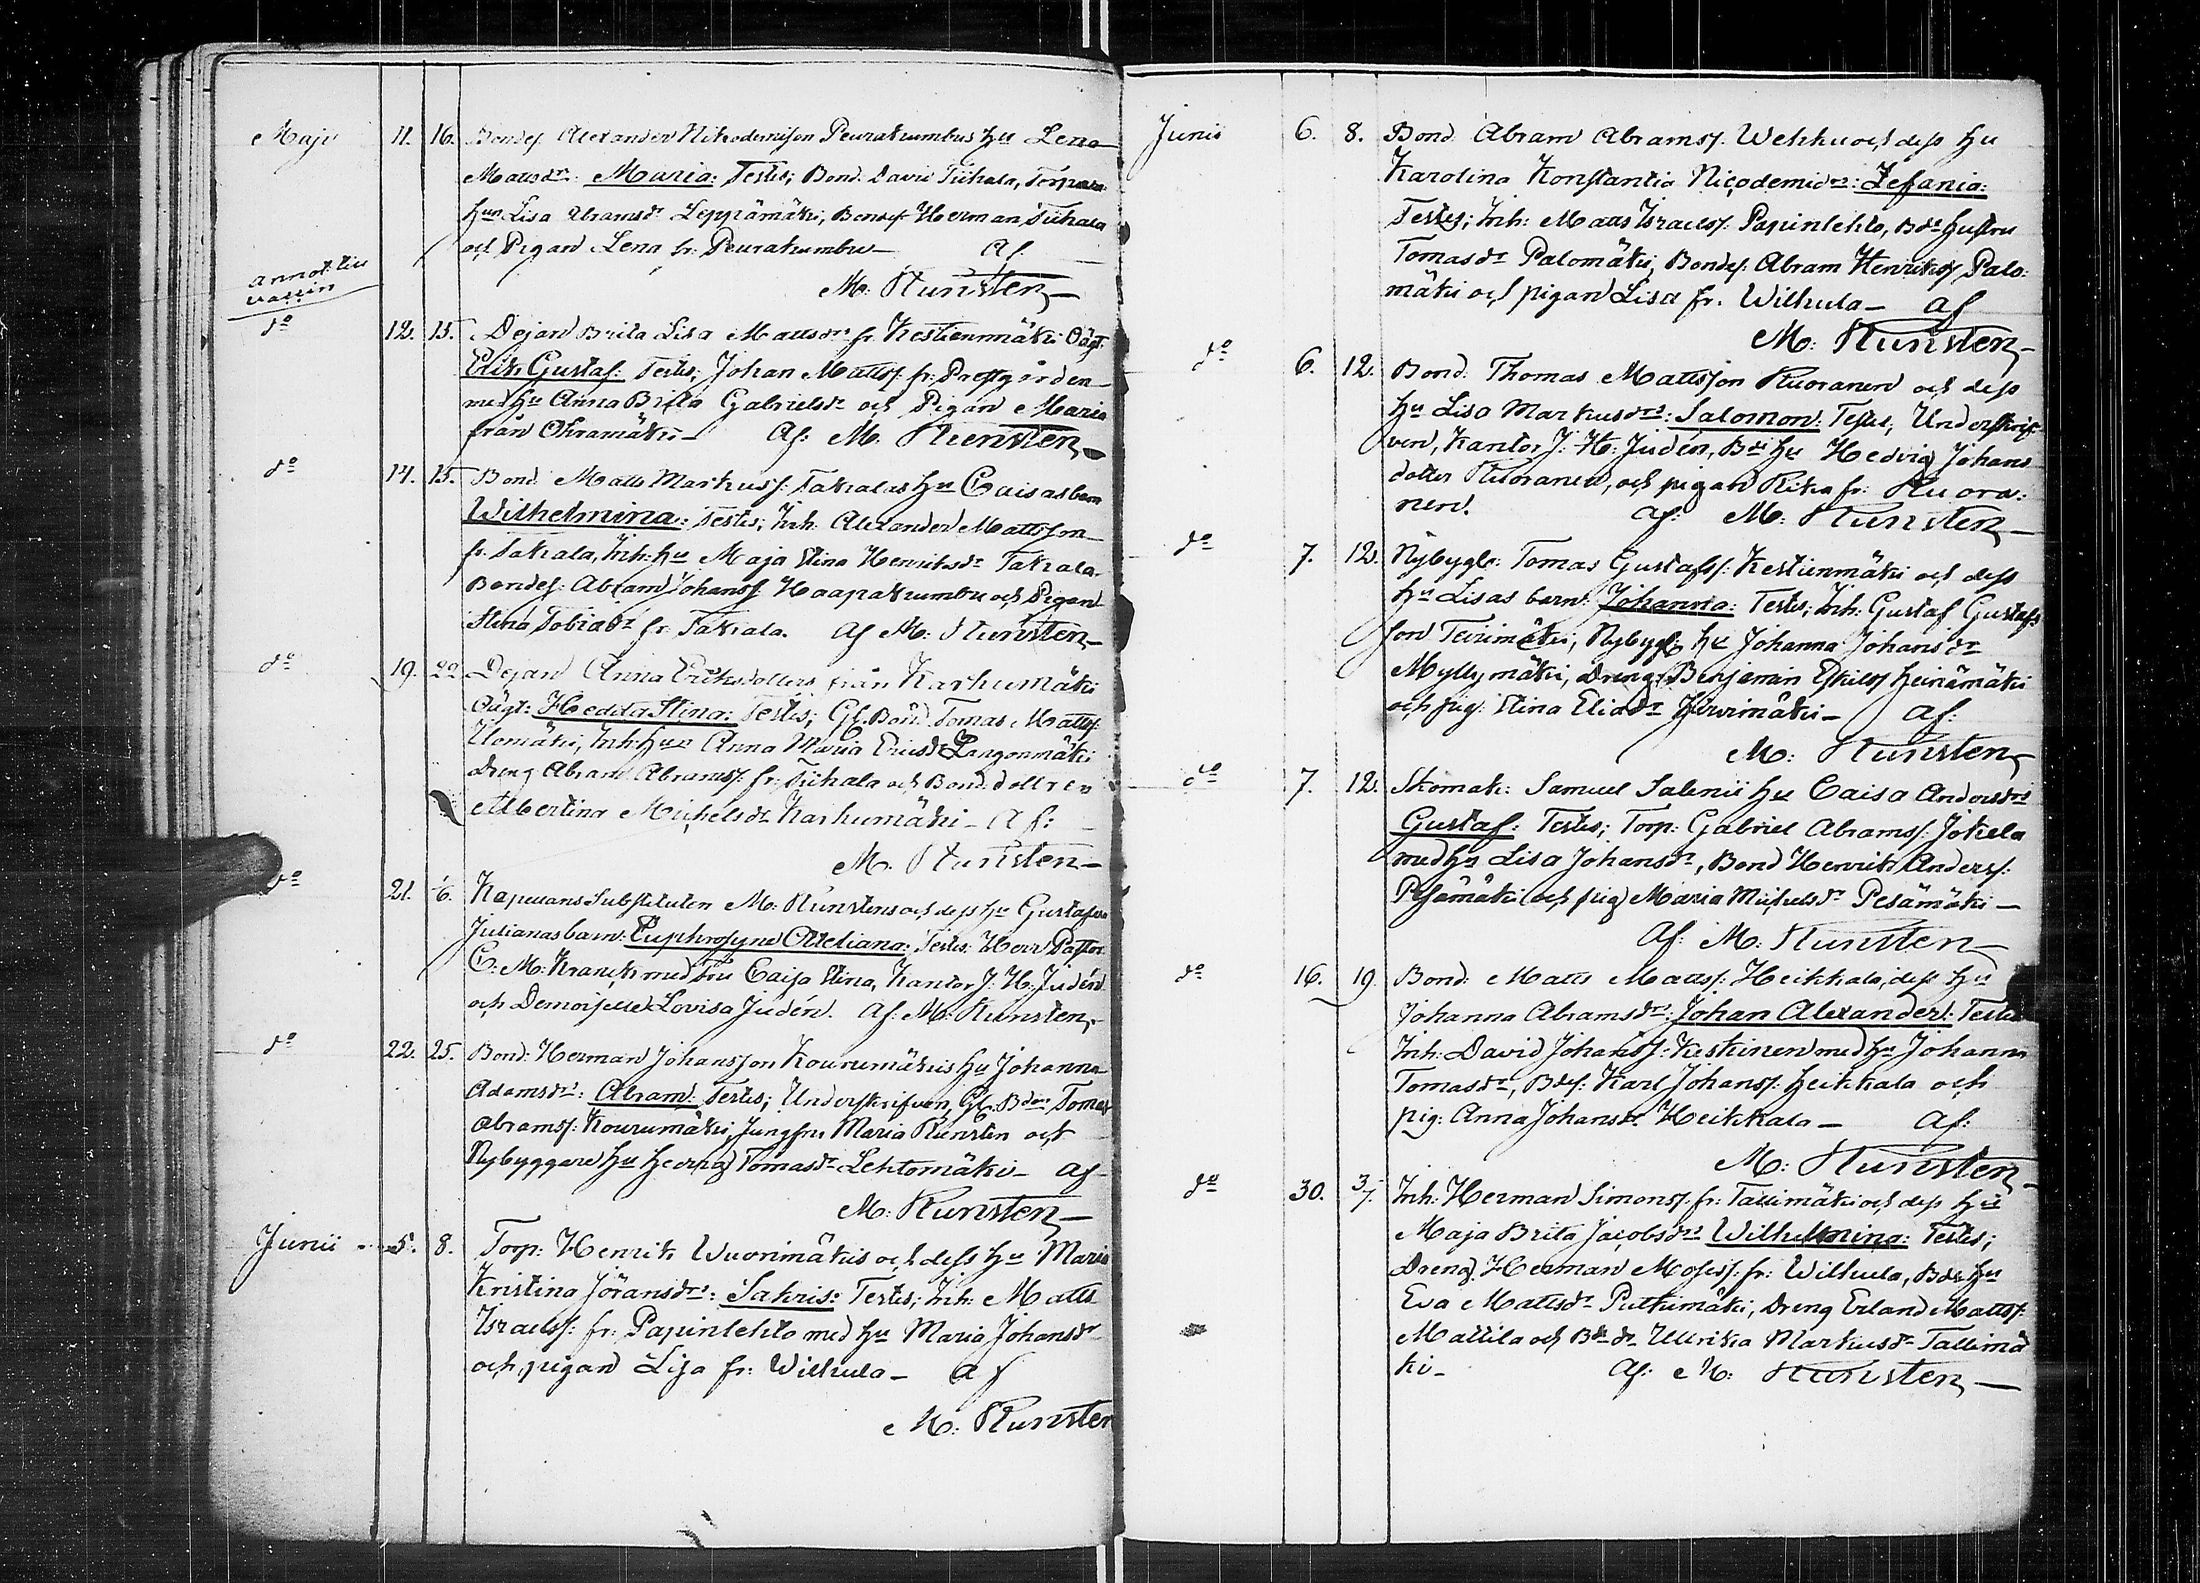 Majo 11. 16. Bondes. Alexander Nikodemisson Peurakumbus hu Lena
Matsdrs: Maria: Testes; Bond. David Tiihala, Torpare
hun Lisa Abramsdr Leppämäki, Bondes. Herman Tiihala
och Pigan Lena fr: Peurakumbu— Af:
M: Runsten—
annot.
do 12. 15. Dejan Brita Lisa Mattsdrs fr. Kestienmäki Oägt:
Erik Gustaf: Testes; Johan Matts. fr: Prestgården
med hu Anna Brita Gabrielsdr och Pigan Maria
från Ohramäki— Af: M. Runsten—
do 14. 15. Bond. Matts Markus: Takalas hu Caisas barn
Wilhelmina: Testes; Inh: Alexander Mattsson
fr. Takala, Inh: hu Maja Stina Henriksdr Takala.
Bondes: Abram Johanss. Haapakumbu och Pigan
Stina Tobiadr fr: Takala. Af M: Runsten—
do 19. 22. Dejan Anna Eriksdotters från Karhumäki
Oägt: Hedda Stina: Testes; Gl. Bond. Tomas Matts:
Ulomäki, Inh: hun Anna Maria Ericsdr Langonmäki
dreng Abram Abramss. fr: Tiihala och Bond. dottren
Albertina Michelsdr Karhumäki— Af:
M. Runsten—
do 21. 6. Kapellans Substituten M: Runstens och dess hu Gustafva
Julianas barn: Euphrosyne Aureliana: Testes: Herr Pastor
C: M: Kranck med fru Caijsa Stina, Kantor J. H: Judén
och Demoiselle Lovisa Judén. Af: M: Runsten—
do 22. 25. Bond: Herman Johansson Kourumäkis hu Johanna
Adamsdrs: Abram: Testes; Underskrifven, Gl: Bden Tomas
Abrams: Kourumäki, Jungfru Maria Runsten och
Nybyggare hu Hedvig Tomasdr Lehtomäki— Af
M: Runsten—
Junii 5. 8. Torp: Henrik Wuorimäkis och dess hu Maria
Kristina Jöransdrs: Sakris: Testes; Inh: Matts
Israels: fr: Papinlehto med hu Maria Johansdr
och pigan Lisa fr: Wilhula— Af
M: Runsten
Junii 6. 8. Bond. Abram Abrams: Wehku och dess hu
Karolina Konstantia Nicodemidrs: Zefania:
Testes; Inh: Matts Israels: Papinlehto, Bds hustru
Tomasdr Palomäki, Bondes. Abram Henriks Palo:
mäki och pigan Lisa fr. Wilhula— Af
M: Runsten—
do 6. 12. Bond. Thomas Mattsson Ruoranen och dess
hu Lisa Markusdrs: Salomon: Testes, Underskrif
ven, Kantor J: H: Judén, Bds hu Hedvig Johans
dotter Ruoranen, och pigan Rika fr: Ruora:
nen. af: M: Runsten—
do 7. 12. Nybygg: Tomas Gustafs: Kestienmäki och dess
hu Lisas barn: Johanna: Testes; Inh: Gustaf Gustafs
son Teirimäki, Nybygg. hu Johanna Johansdr
Myllymäki, Dreng Benjamin Eskils Heinämäki
och pig: Stina Eliadr Hirvimäki— Af:
M: Runsten—
do 7. 12. Skomak: Samuel Salenii hu Caisa Andersdrs
Gustaf: Testes; Torp: Gabriel Abrams: Jokela
med hu Lisa Johansdr, Bond Henrik Anders:
Pesämäki och pig Maria Michelsdr Pesämäki—
Af: M: Runsten—
do 16. 19. Bond: Matts Matts: Heikkala, dess hu
Johanna Abramsdrs: Johan Alexander: Testes
Inh: David Johans: Keskinen med hu Johanna
Tomasdr, Bdes: Karl Johans: Heikkala och
pig: Anna Johansdr Heikkala— Af:
M: Runsten—
do 30. 3/7. Inh: Herman Simons: fr: Tallimäki och dess hu
Maja Brita Jacobsdrs Wilhelmina: Testes;
Dreng. Herman Moses. fr: Wilhula, Bds hu
Eva Mattsdr Putkimäki, Dreng Erland Matts:
Mattila och Bds dr Ullrika Markusdr Tallimä
ki— Af: M: Runsten—